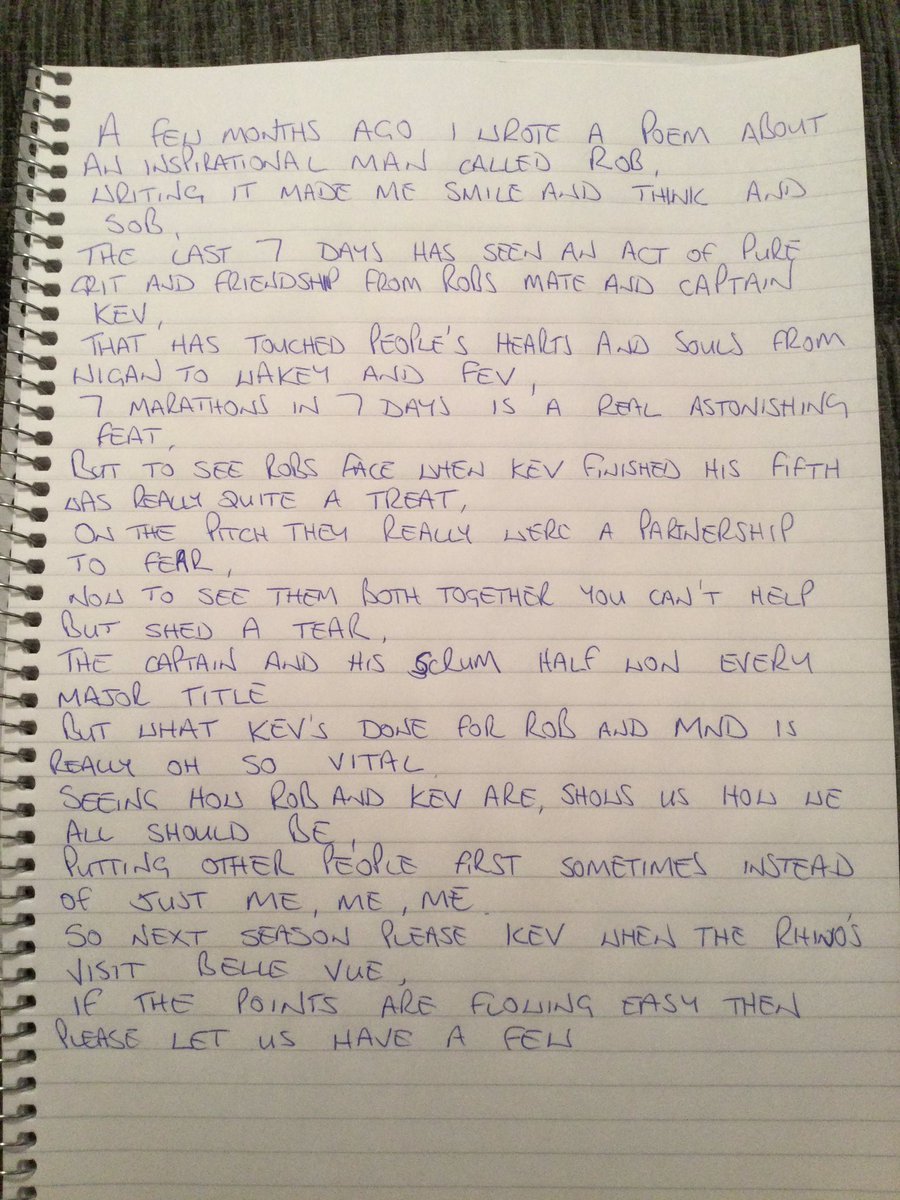 A FEW MONTHS AGO I WROTE A POEM ABOUT
AN INSPIRATIONAL MAN CALLED ROB,
WRITING IT MADE ME SMILE AND THINK AND
SOB,
THE LAST 7 DAYS HAS SEEN AN ACT OF PURE
GRIT AND FRIENDSHIP FROM ROBS MATE AND CAPTAIN
KEV,
THAT HAS TOUCHED PEOPLE'S HEARTS AND SOULS FROM
WIGAN TO WAKEY AND FEV,
7 MARATHONS IN 7 DAYS IS A REAL ASTONISHING
FEAT,
BUT TO SEE ROBS FACE WHEN KEV FINISHED HIS FIFTH
WAS REALLY QUITE A TREAT,
ON THE PITCH THEY REALLY WERE A PARTNERSHIP
TO FEAR,
NOW TO SEE THEM BOTH TOGETHER YOU CAN'T HELP
BUT SHED A TEAR,
THE CAPTAIN AND HIS SCRUM HALF WON EVERY
MAJOR TITLE
BUT WHAT KEV'S DONE FOR ROB AND MND IS
REALLY OH SO VITAL.
SEEING HOW ROB AND KEV ARE, SHOWS US HOW WE
ALL SHOULD BE,
PUTTING OTHER PEOPLE FIRST SOMETIMES INSTEAD
OF JUST ME, ME, ME.
SO NEXT SEASON PLEASE KEV WHEN THE RHINO'S
VISIT BELLE VUE,
IF THE POINTS ARE FLOWING EASY THEN
PLEASE LET US HAVE A FEW